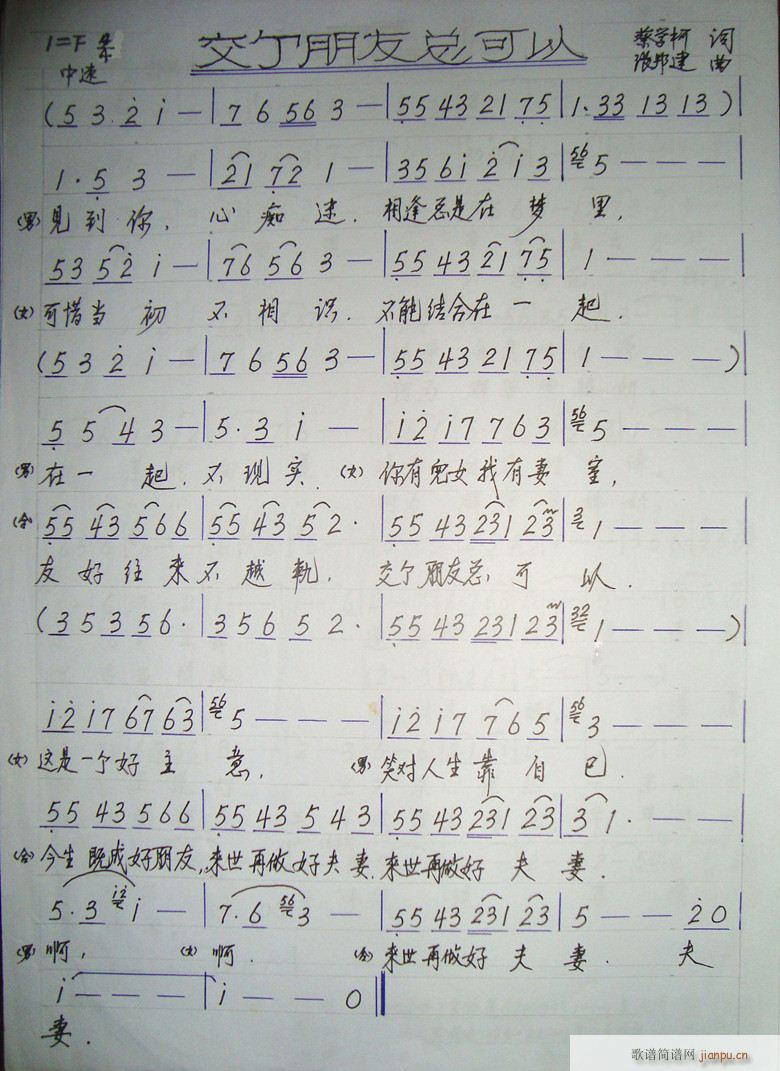 交了朋友总可以
1=F 4/4
中速
蔡学柯 词
邦建 曲
(5 3 2̇ i — | 7 6 56 3 — | 55 43 21 75 | 1·33 13 13 )
1·5 3 — | 21 72 1 — | 356i 2̇i3 | 56 5 — — —
(男)见到你, 心痴迷. 相逢总是在梦里,
53 52̇ i — | 76 56 3 — | 55 43 21 75 | 1 — — —
(女)可惜当初不相识. 不能结合在一起.
(53 2̇ i — | 7 6 56 3 — | 55 43 21 75 | 1 — — — )
5 5 4 3 — | 5·3 i — | i2̇ i7 763 | 56 5 — — —
(男)在一起. 不现实 (女)你有儿女我有妻室,
(合) 55 43 566 | 55 43 5 2· | 55 43 231 23 | 3 1 — — —
友好往来不越轨. 交了朋友总可以.
(35356· | 356 5 2· | 55 43 231 23 | 32 1 — — — )
i2̇ i7 67 63 | 56 5 — — — | i2̇ i7 765 | 56 3 — — —
(女)这是一个好主意, (男)笑对人生靠自己.
55 43 566 | 55 43 543 | 55 43 231 23 | 3 1· — —
(合)今生既成好朋友, 来世再做好夫妻. 来世再做好夫妻.
5·3 i2̇ i — | 7·6 56 3 — | 55 43 231 23 | 5 — — 2̇0
(男)啊, (女)啊. (合)来世再做好夫妻. 夫
i — — — | i — — 0
妻.
歌谱简谱网 jianpu.cn